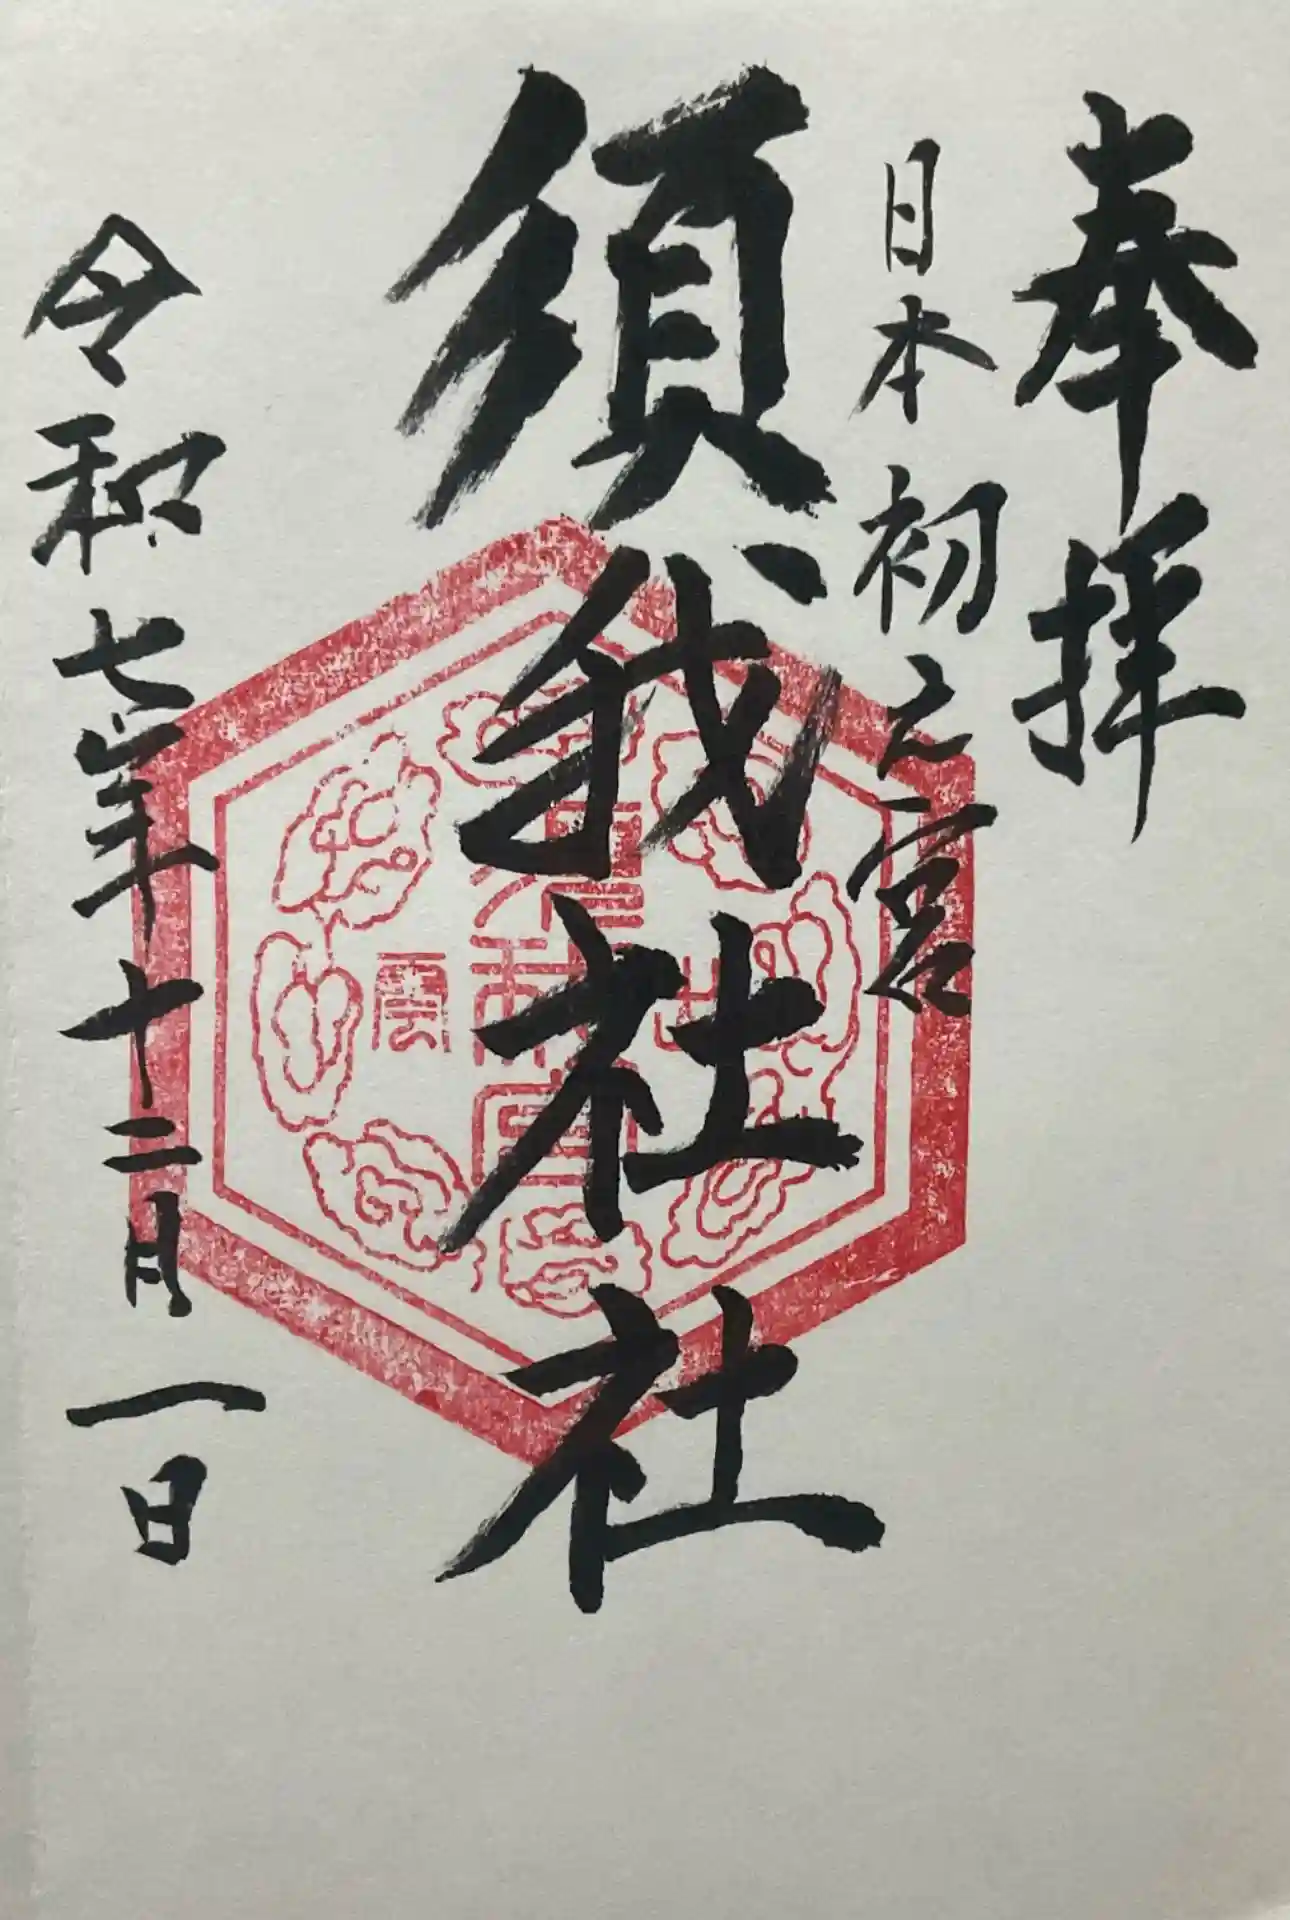 奉拝
日本初之宮
須我社社
出雲
令和七年十二月一日